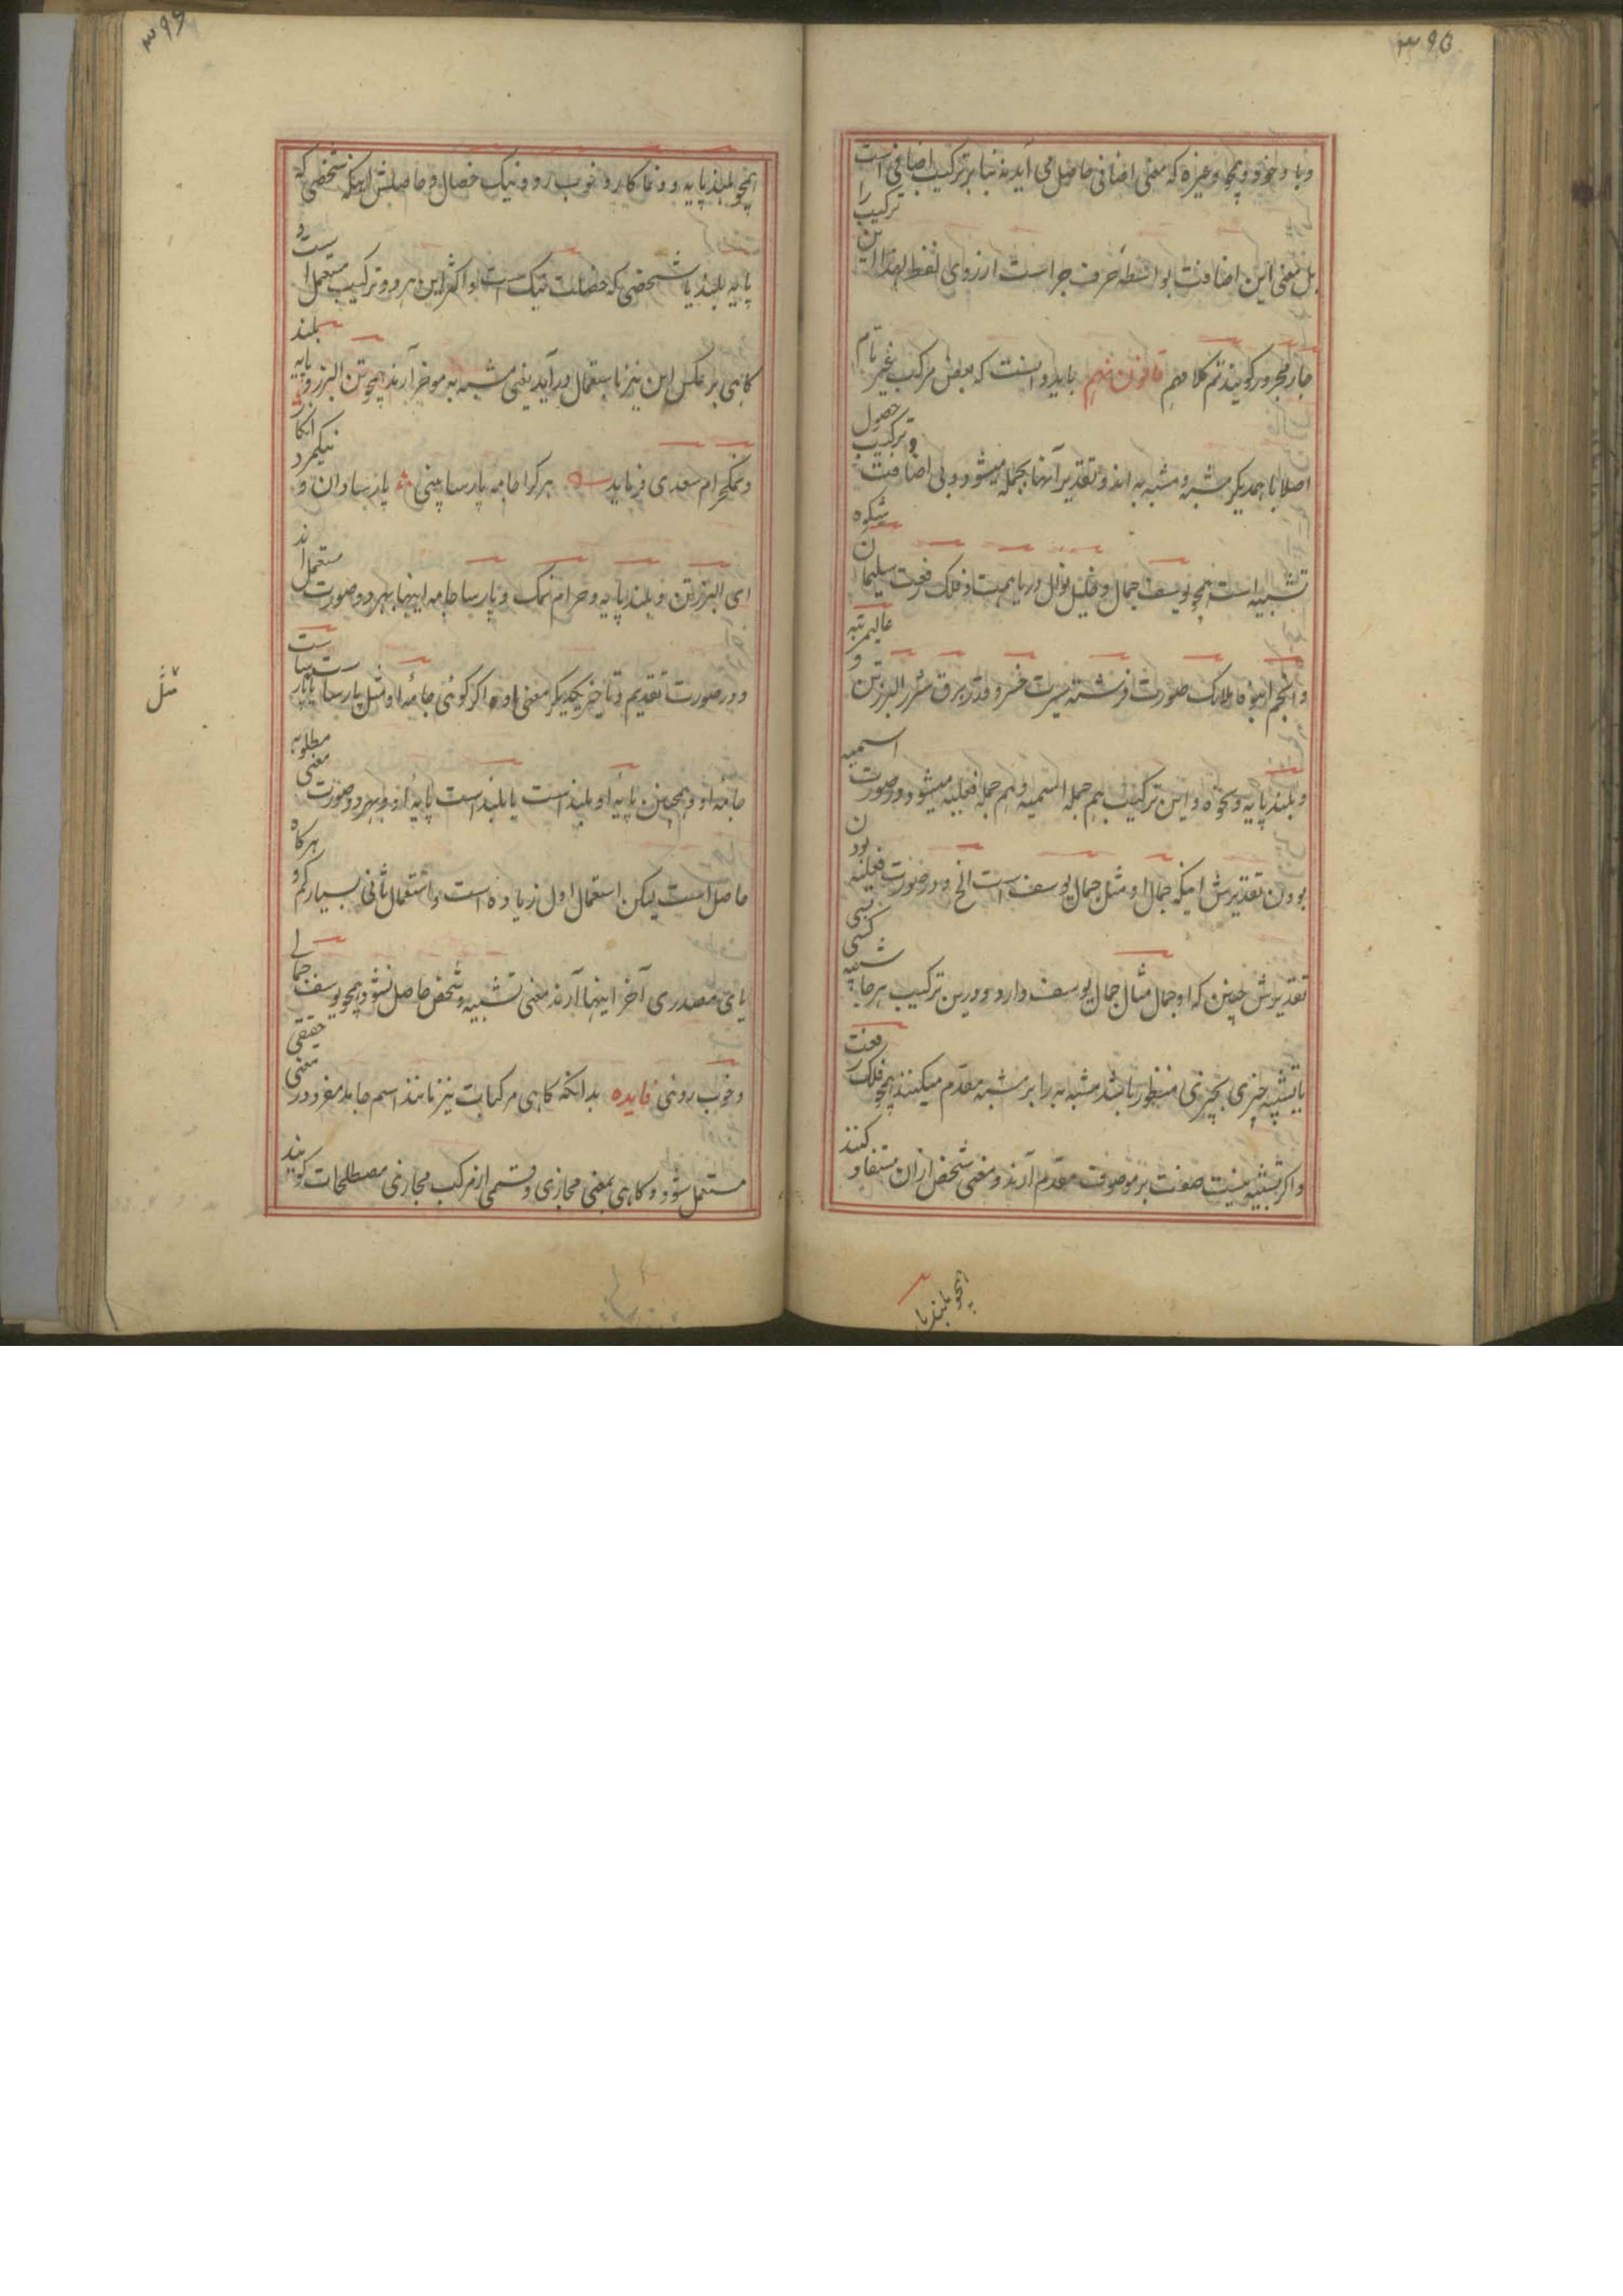 ۳۹۵
وبا و خود و همچو وغیره که معنی اضافی حاصل می آید نه بنا بر ترکیب اضافی است
بل معنی این اضافت بواسطه حرف جر است ازروی لفظ لهذا این ترکیب را
جار مجرور گویند تم کلامهم قانون نهم باید دانست که بعض مرکب غیر تام
اصلا با همدیگر مشبه و مشبه به اند و تقدیر آنها بجمله میشود و بی اضافت و ترکیب حصول
تشبیه است همچو یوسف جمال و فیل نوال دریا همت و فلک رفعت سلیمان شکوه
وانجم انبوه ملائک صورت فرشته سیرت خسرو قدر برق شرر البرز تن و عالیمرتبه
و بلند پایه و نحوه و این ترکیب هم جمله اسمیه و هم جمله فعلیه میشود در صورت اسمیه
بودن تقدیرش اینکه جمال او مثل جمال یوسف است الخ و در صورت فعلیه بودن
تقدیرش چنین که او جمال مثال جمال یوسف دارد و درین ترکیب هرجا تشبیه کسی
یا تشبیه چیزی بچیزی منظور باشد مشبه به را بر مشبه مقدم میکنند همچو فلک رفعت
واگر تشبیه نیست صفت بر موصوف مقدم آرند و معنی شخص ازان مستفاد کنند
همچو بلند پا
۳۹۶
همچو بلند پایه و دغا کار و خوب رو و نیک خصال و حاصلش اینکه شخصی که
پایه بلند یا شخصی که خصالت نیک است و اکثر این هر دو ترکیب مستعمل است و
گاهی بر عکس این نیز باستعمال در آید یعنی مشبه به موخر آرند همچو تن البرز و پایه بلند
و نمکحرام سعدی فرماید هر کرا جامه پارسا بینی پارسا دان و نیکمرد انگار
ای البرز تن و بلند پایه و حرام نمک و پارسا جامه اینها بهر دو صورت مستعمل اند
و در صورت تقدیم و تاخیر یکدیگر معنی او اگر گوئی جامهٔ او مثل پارسا یا پارساست
مثل
جامهٔ او و همچنین پایهٔ او بلند است یا بلند است پایهٔ او و بهر دو صورت معنی مطلوبه
حاصل است لیکن استعمال اول زیاده است و استعمال ثانی بسیار کم و هرگاه
یای مصدری آخر اینها آرند معنی تشبیه و شخص حاصل نشود همچو یوسف جمالی
و خوب روئی فایده بدانکه گاهی مرکبات نیز مانند اسم جامد مفرد در معنی حقیقی
مستعمل شود و گاهی بمعنی مجازی و قسمی از مرکب مجازی مصطلحات گویند